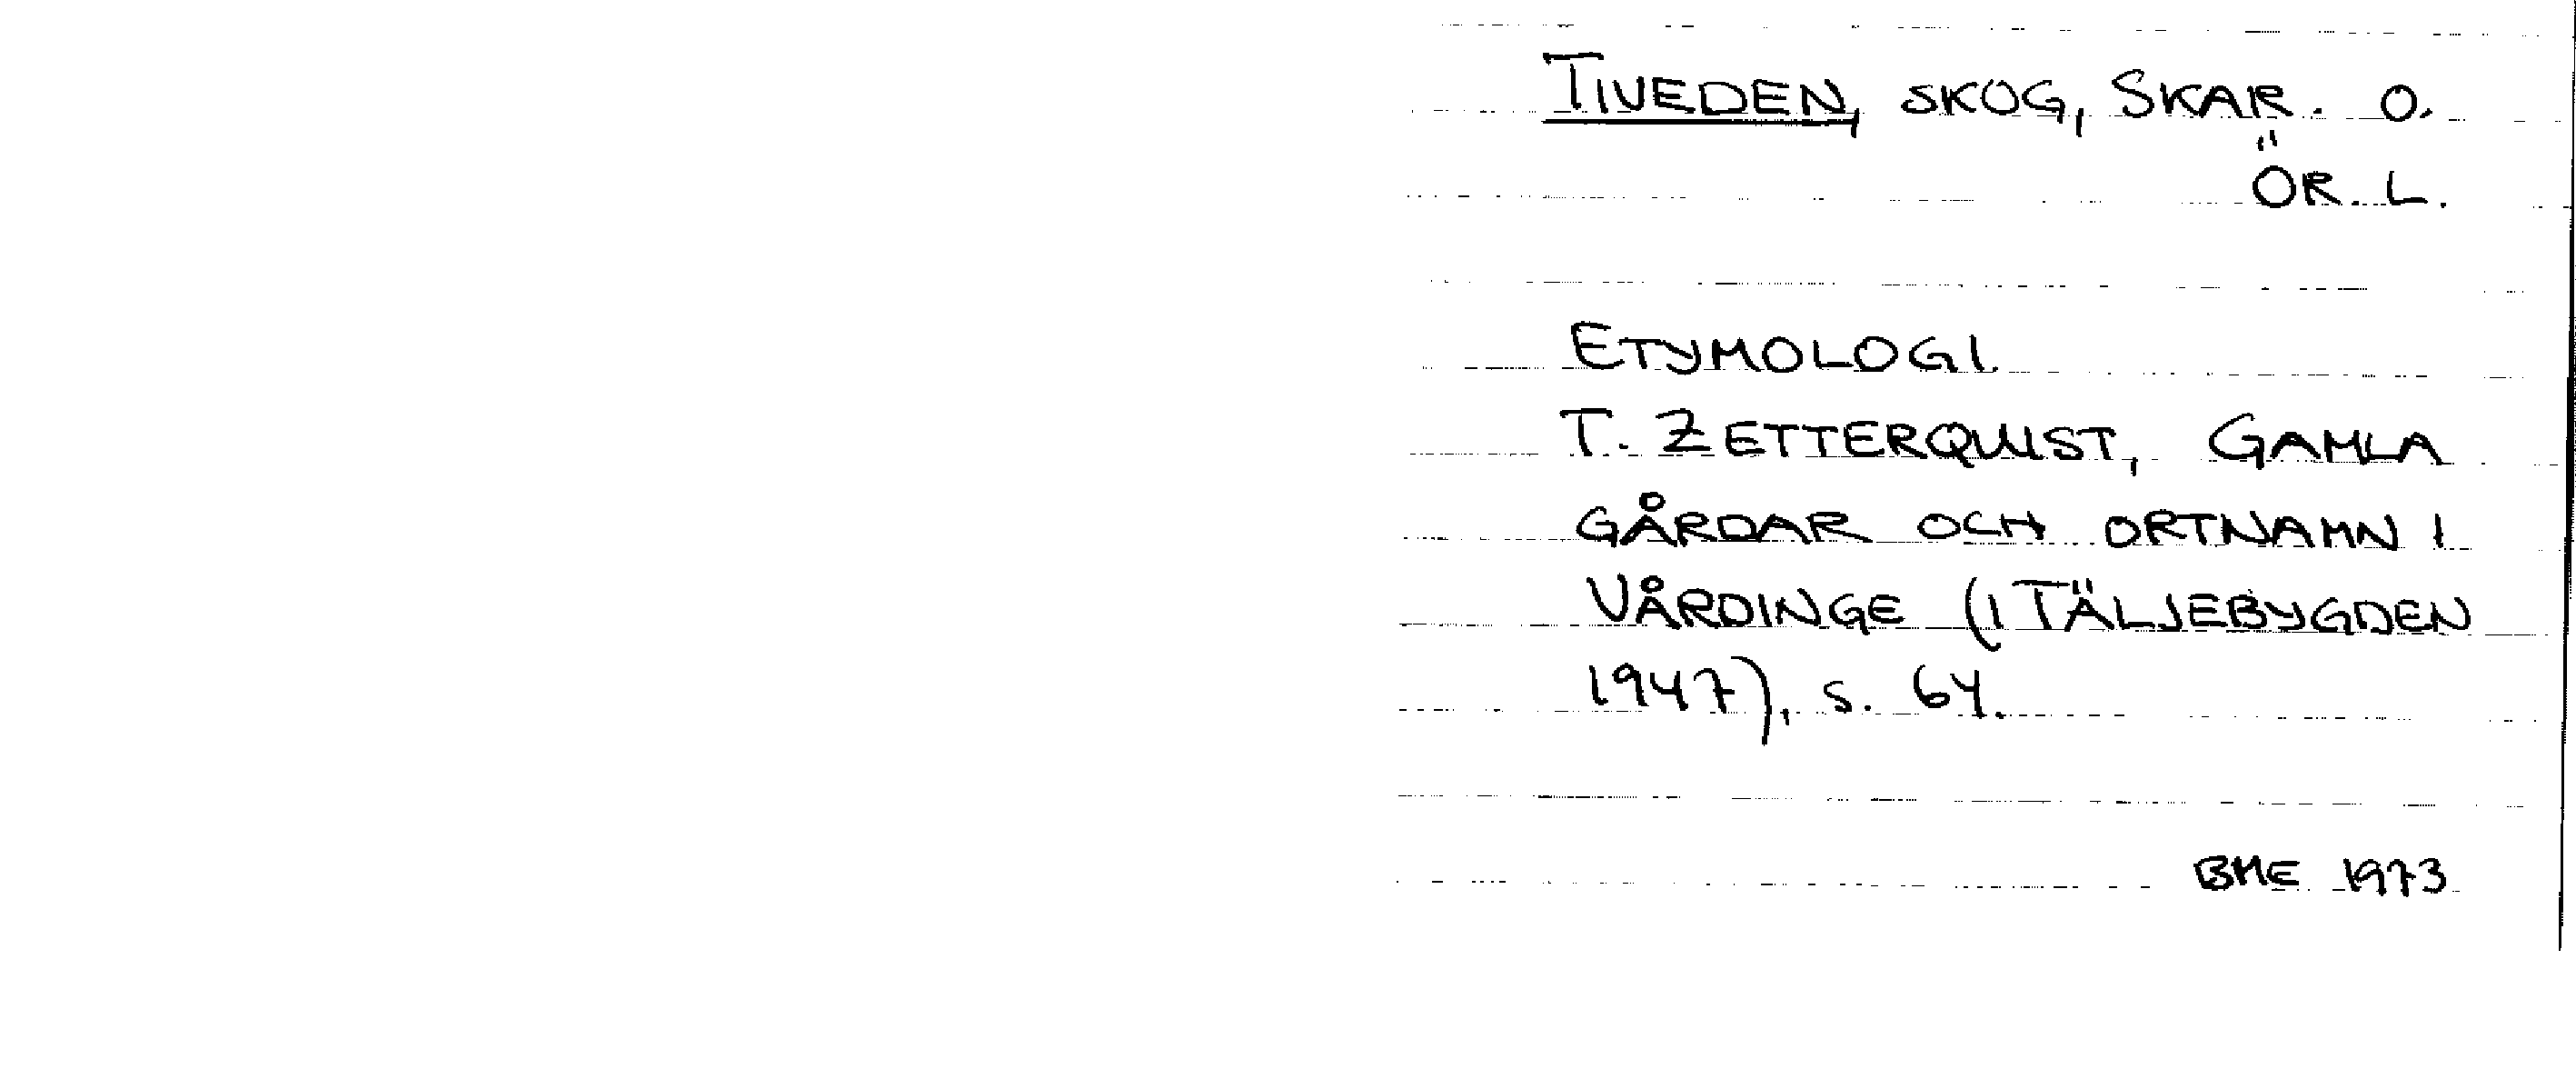 TIVEDEN, SKOG, SKAR. O.
ÖR. L.
ETYMOLOGI.
T. ZETTERQUIST, GAMLA
GÅRDAR OCH ORTNAMN I
VÅRDINGE (I TÄLJEBYGDEN
1947), S. 64.
BME 1973